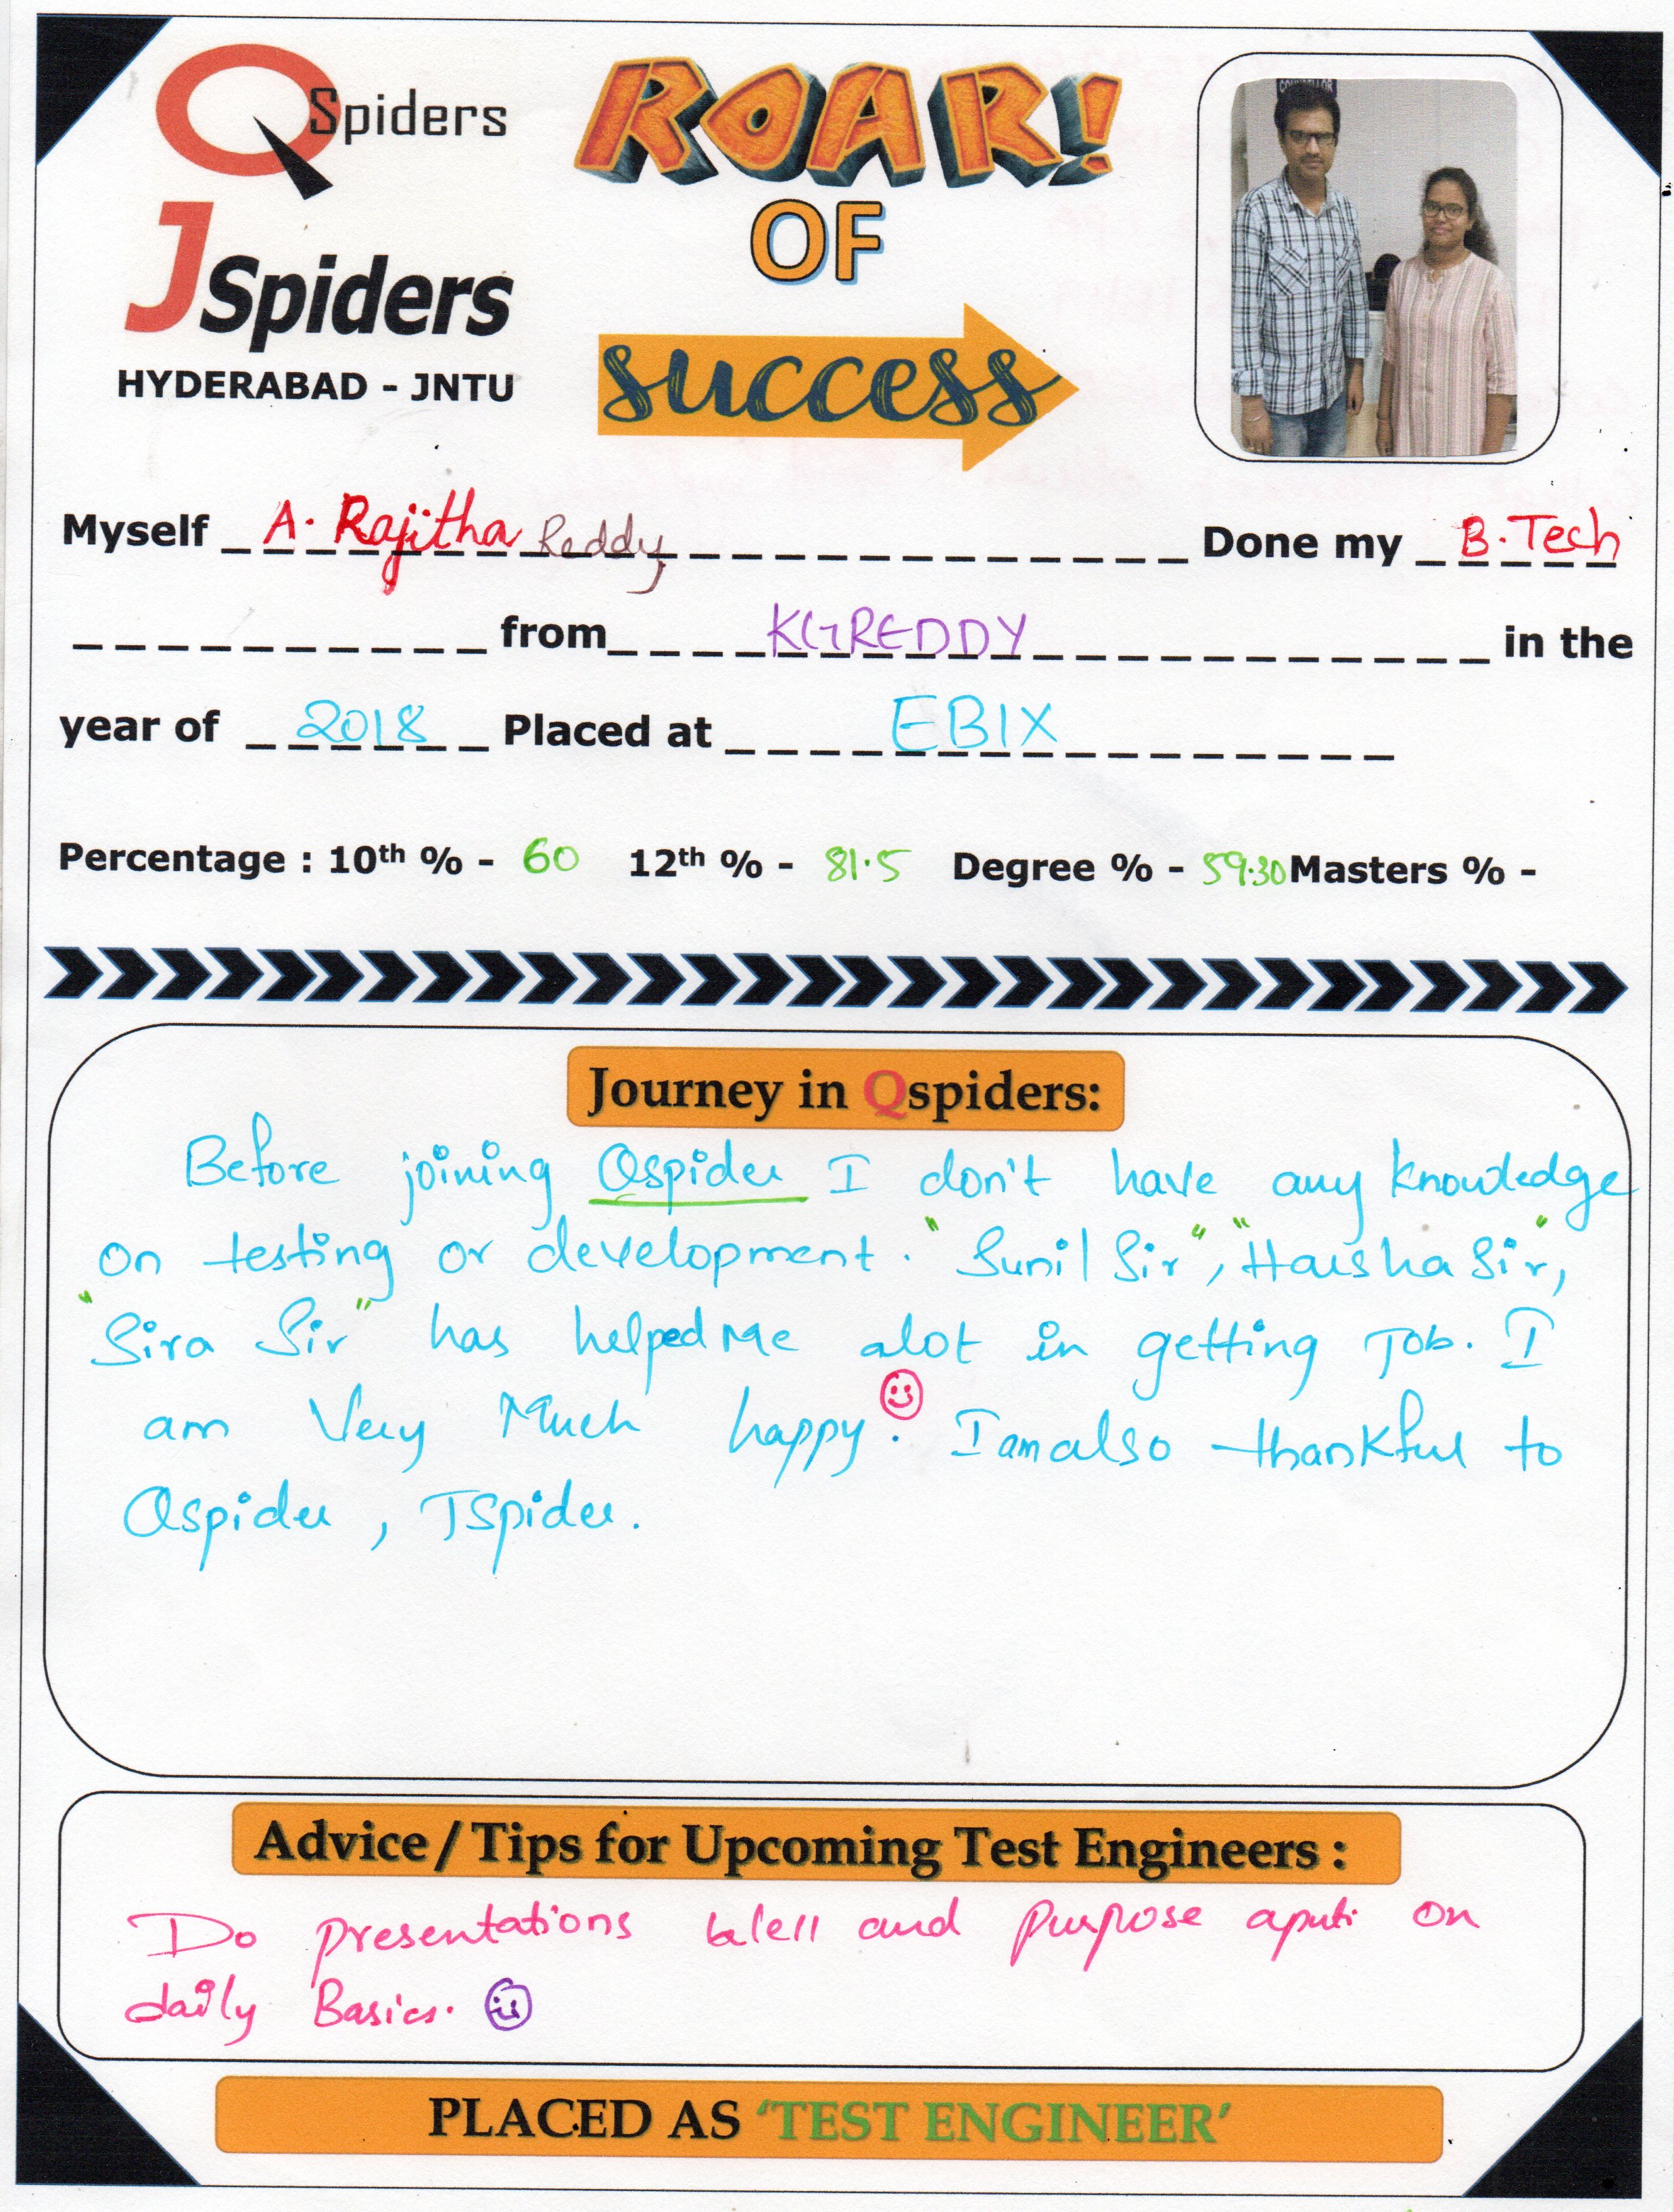 QSpiders
JSpiders
HYDERABAD - JNTU
ROAR!
OF
success
COUNSELLOR
Myself A. Rajitha Reddy Done my B.Tech
from KGREDDY in the
year of 2018 Placed at EBIX
Percentage : 10th % - 60 12th % - 81.5 Degree % - 59.30 Masters % -
Journey in Qspiders:
Before joining Qspider I don't have any knowledge
on testing or development. "Sunil Sir", "Harsha Sir",
"Sira Sir" has helped me alot in getting Job. I
am Very Much happy. I am also thankful to
Qspider, JSpider.
Advice / Tips for Upcoming Test Engineers :
Do presentations Well and purpose aputi on
daily Basics.
PLACED AS 'TEST ENGINEER'